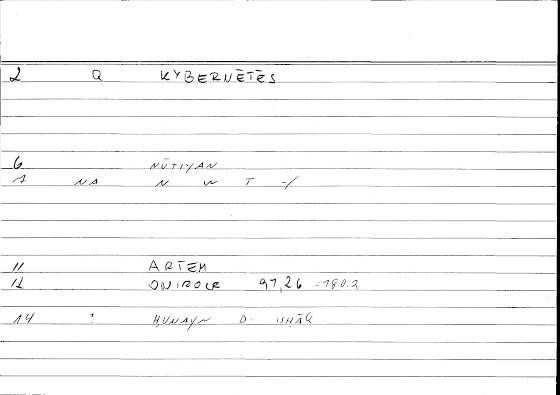 2 Q KYBERNĒTĒS
6 NŪTIYAN
7 NA N W T -/
11 ARTEM
12 ONIROCR 97,26 =180.2
14 : ḤUNAYN B. ISḤĀQ